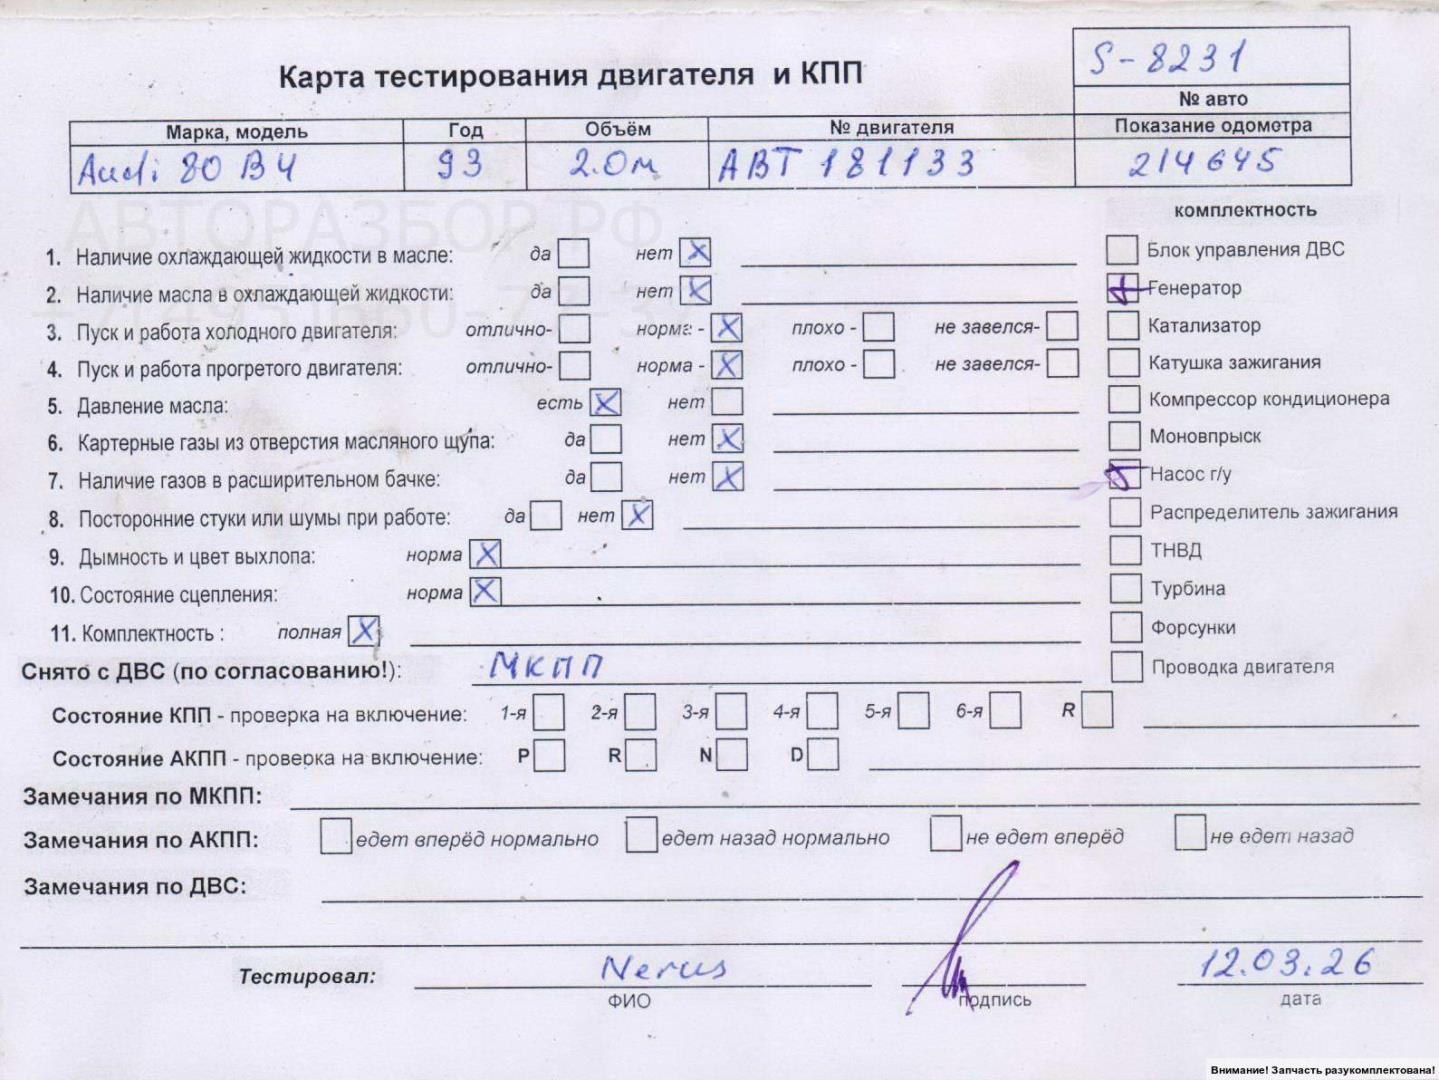 S-8231
Карта тестирования двигателя и КПП
№ авто
Марка, модель Год Объём № двигателя Показание одометра
Audi 80 B4 93 2.0м ABT 181133 214645
АВТОРАЗБОР.РФ
комплектность
1. Наличие охлаждающей жидкости в масле: да нет X Блок управления ДВС
2. Наличие масла в охлаждающей жидкости: да нет X Генератор
3. Пуск и работа холодного двигателя: отлично- норма - X плохо - не завелся- Катализатор
4. Пуск и работа прогретого двигателя: отлично- норма - X плохо - не завелся- Катушка зажигания
5. Давление масла: есть X нет Компрессор кондиционера
6. Картерные газы из отверстия масляного щупа: да нет X Моновпрыск
7. Наличие газов в расширительном бачке: да нет X Насос г/у
8. Посторонние стуки или шумы при работе: да нет X Распределитель зажигания
9. Дымность и цвет выхлопа: норма X ТНВД
10. Состояние сцепления: норма X Турбина
11. Комплектность : полная X Форсунки
Снято с ДВС (по согласованию!): МКПП Проводка двигателя
Состояние КПП - проверка на включение: 1-я 2-я 3-я 4-я 5-я 6-я R
Состояние АКПП - проверка на включение: P R N D
Замечания по МКПП:
Замечания по АКПП: едет вперёд нормально едет назад нормально не едет вперёд не едет назад
Замечания по ДВС:
Тестировал: Nerus 12.03.26
ФИО подпись дата
Внимание! Запчасть разукомплектована!